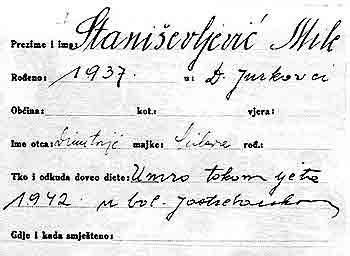 Prezime i ime: Staniševljević Mile
Rođeno: 1937. u: D. Jurkovci
Općina: kot.: vjera:
Ime otca: Dimitrije majke: rođ.:
Tko i odkuda doveo diete: Umro tokom ljeta
1942 u bol. Jastrebarskom
Gdje i kada smješteno: